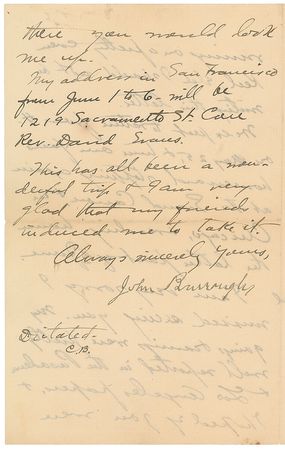 there you would look
me up.
My address in San Francisco
from June 1 to 6 - will be
1219 Sacramento St. Care
Rev. David Evans.
This has all been a won-
derful trip & I am very
glad that my friends
induced me to take it.
Always sincerely yours,
John Burroughs
Dictated.
C.B.